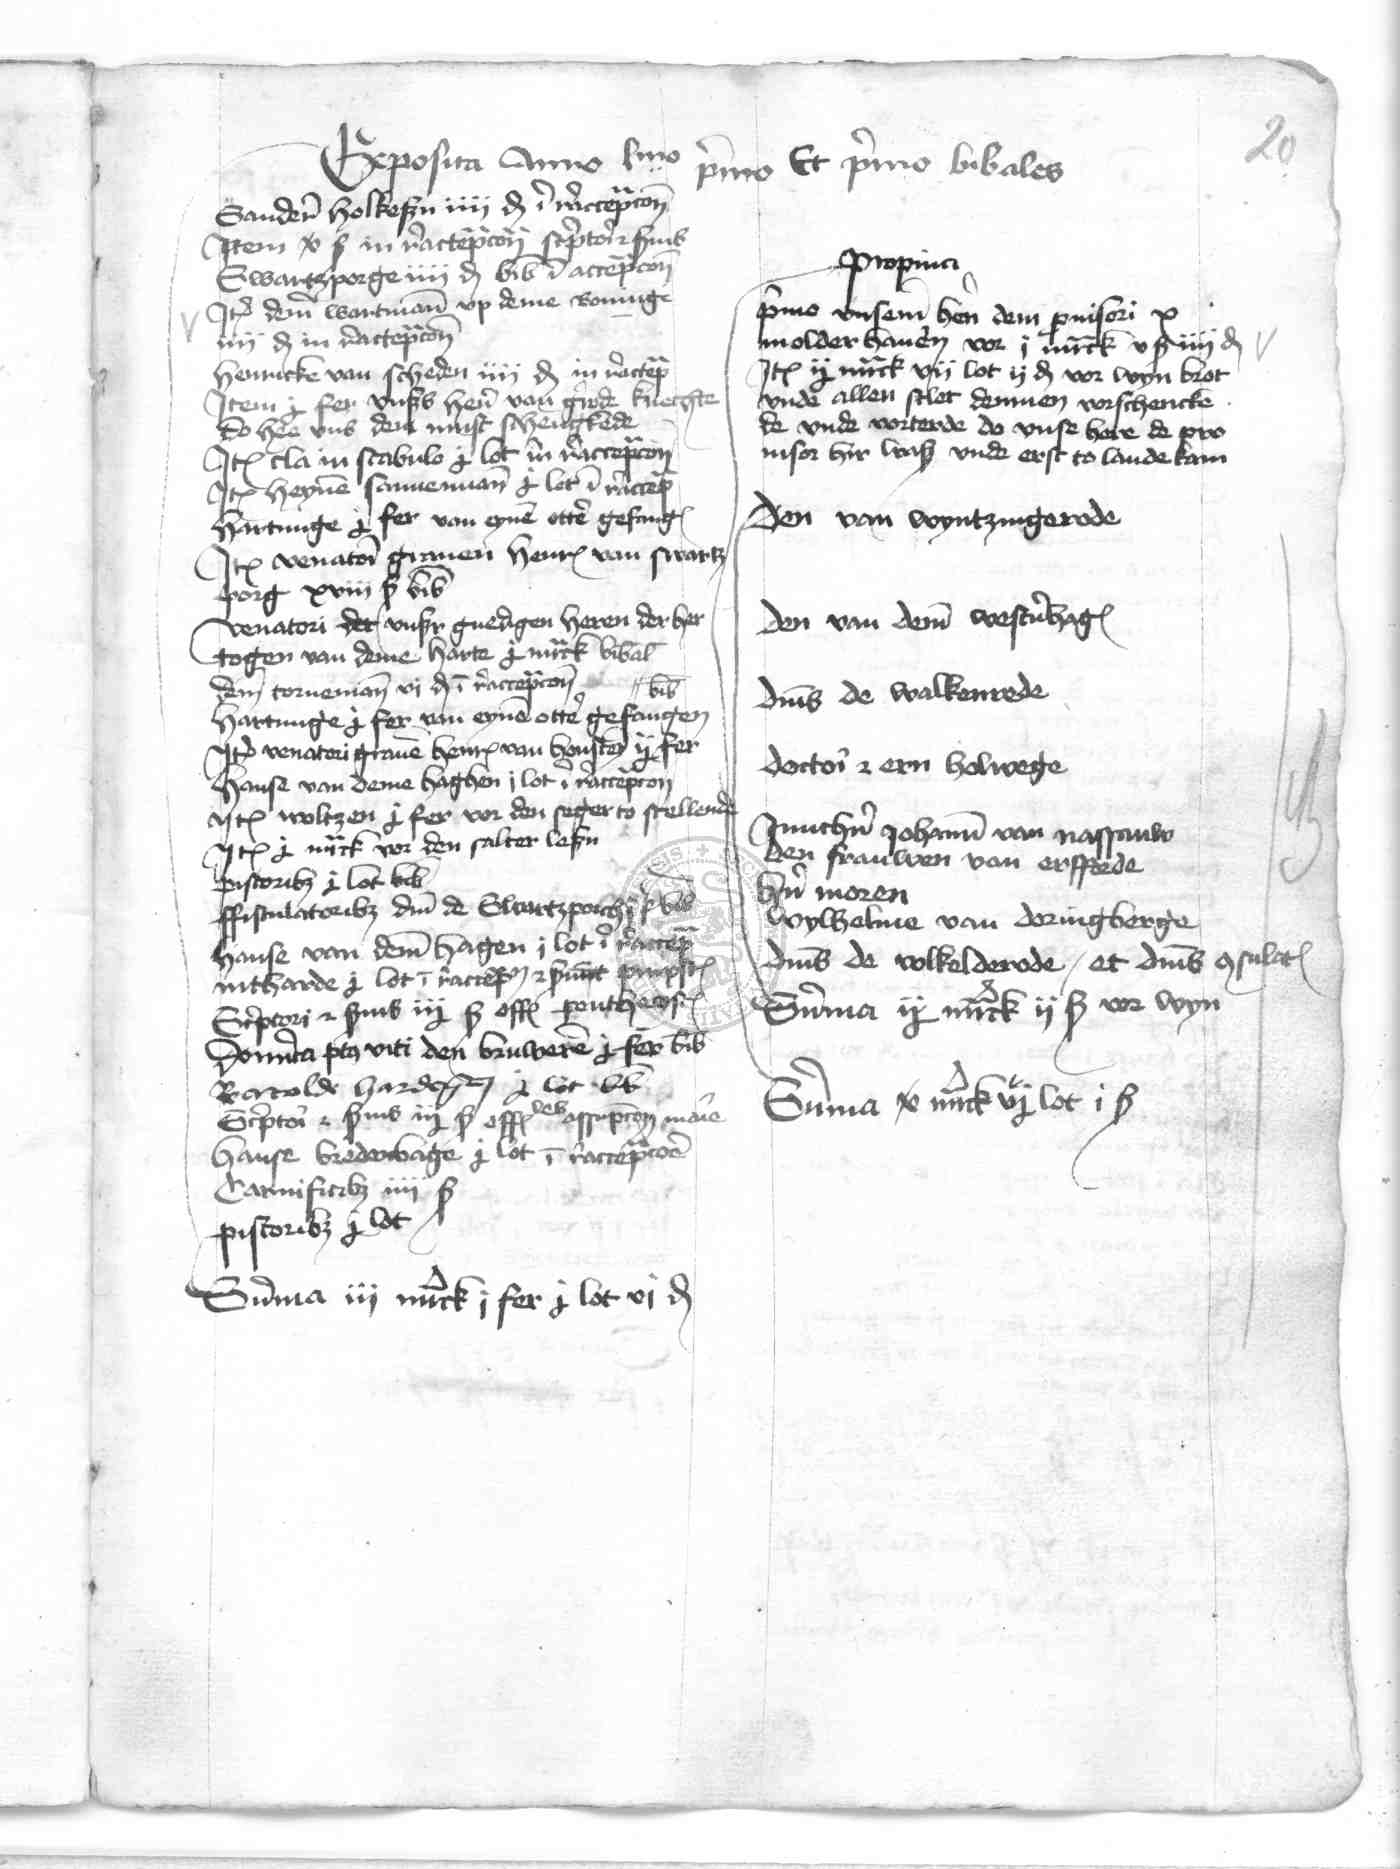 20
Exposita Anno lmo primo Et primo bibales
Sandern holkesen iiii d in raccepcon
Item v s in raccepcon scriptori z suis
Swartzporge iiii d bib in accepcon
Itm dem wartman vp deme koninge
iiii d in raccepcon
henricke van scheden iiii d in raccep
Item j fer vnses hern van grode knechte
do hee vns den must schengkede
Itm cla in stabulo j lot in raccepcon
Itm heyne sannemann j lot in raccep
hartunge j fer van eyne otter gefangen
Itm venatori grauen henr van swartz
borg xviii s bib
venatori der vnser gnedigen heren der her
togen van deme harte j mrck bibal
dem torneman vi d in raccepcon
hartunge j fer van eyne otter gefangen bib
Itm venatori grauen henr van honsten ij fer
hanse van deme haghen i lot in raccepcon
Itm woltzen j fer vor den seger to stellende
Itm j mrck vor den salter lesen
pistoribz j lot bib
ffistulatoribz dni de Swartzporch s bib
hanse van dem hagen j lot in raccep
nitharde j lot in raccepcon
Scriptori z suis iij s offe penthecost
Donrsta post viti den bruweren j fer bib
Bartolde j lot bib
Scriptori z suis iij s offe des assumpcon marie
hanse bredenbage j lot in raccepcon
Carnificibz iiii s
pistoribz j lot
Summa iii mrck i fer j lot vi d
Propinci
primo vnsem hern dem prouisori x
molder hauern vor i mrck v s iiii d
Itm ij mrck vii lot ij d vor wyn brot
vnde allen slet dennen vorschencke
de vnde vorterde do vnse here de pro
uisor hir wass vnde erst to lande kam
Den van wyntzingerode
den van dem westerhagen
dnis de walkenrede
doctori z ern holwege
Juncher Johann van nassauw
den frauwen van erfforde
hern moren
wylhelme van doringberge
dnis de volkelderode et dnis consulat
Summa ij mrck ij s vor wyn
Summa v mrck vij lot i s